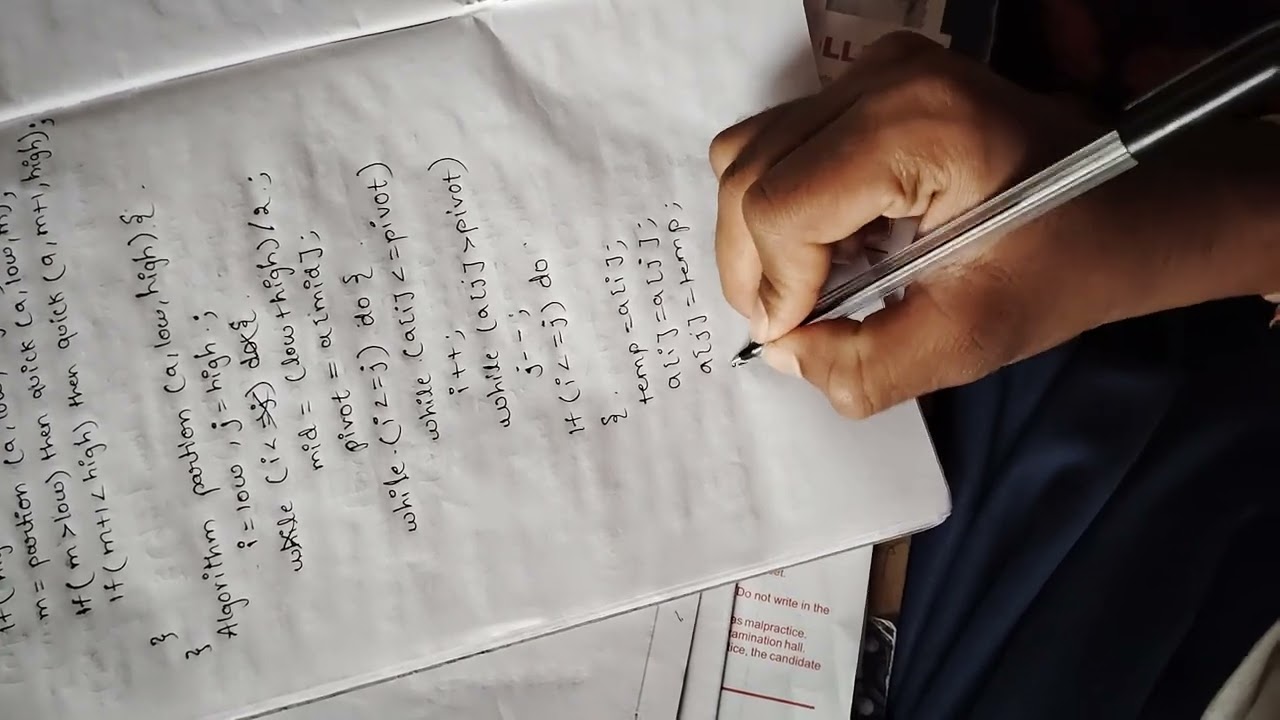 m = partion (a, low,
If (m > low) then quick (a, low, m);
If (m+1 < high) then quick (a, m+1, high);
}
}
Algorithm partion (a, low, high) {
i = low, j = high;
while
mid = (low + high) / 2;
pivot = a[mid];
while (i <= j) do {
while (a[i] <= pivot)
i++;
while (a[j] > pivot)
j--;
If (i <= j) do
{
temp = a[i];
a[i] = a[j];
a[j] = temp;
Do not write in the
as malpractice.
ice, the candidate